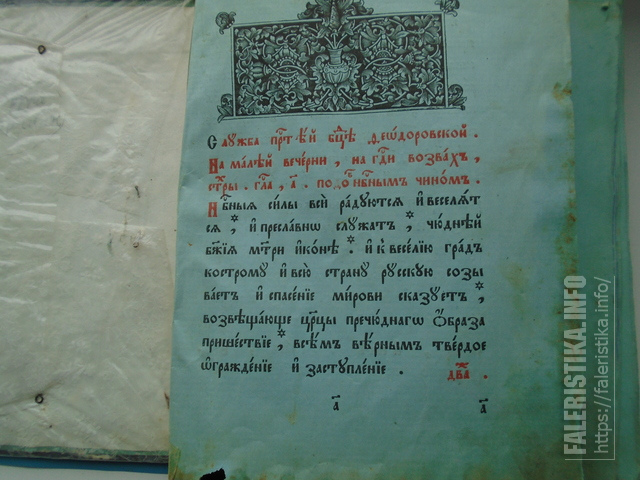 Слꙋжба прст҃ѣй бцⷣѣ ѳеѡдоровской.
На малѣй вечерни, на гдⷭ҇и возвахъ,
стр҃ы. гла҃, а҃. подо́б нбⷭ҇нымъ чиномъ.
Нбⷭ҇ныя силы вси̑ ра́дꙋются и҆ веселѧт
сѧ, и҆ преславнѡ слꙋжатъ, чюднѣй
бж҃їѧ мт҃ри и҆ко́нѣ. и҆ к̾ веселїю градъ
костромꙋ и҆ всю̀ странꙋ рꙋсскꙋю созы
ваетъ и҆ спасенїе мирови сказꙋетъ,
возвѣщающе цр҃цы пречюднагѡ ѻ҆браза
пришествїе, всѣмъ вѣрнымъ твердое
ѡ҆гражденїе и҆ застꙋпленїе. два҃.
а҃ а҃
FALERISTIKA.INFO
https://faleristika.info/